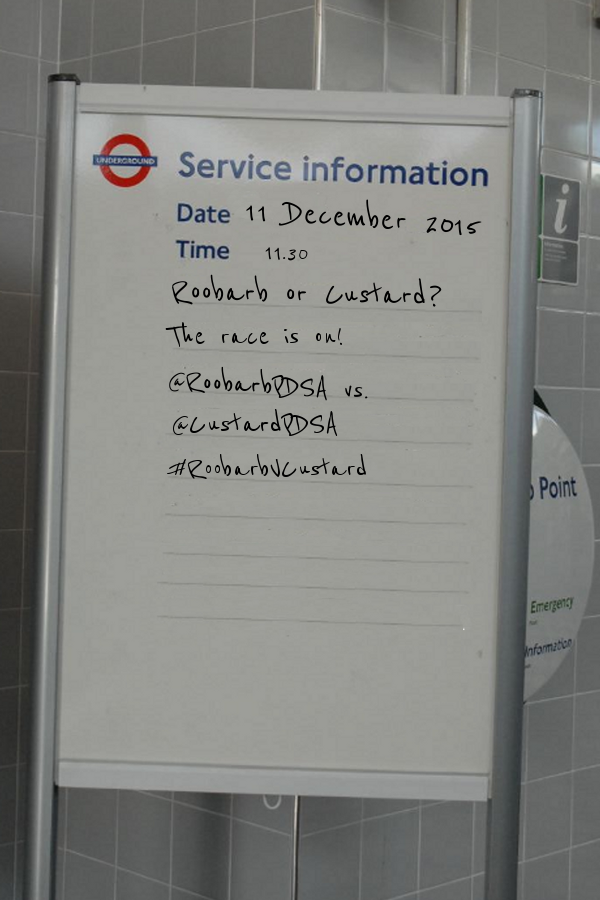 UNDERGROUND
Service information
Date 11 December 2015
Time 11.30
Roobarb or Custard?
The race is on!
@RoobarbPDSA vs.
@CustardPDSA
#RoobarbVCustard
i
Point
Emergency
Information